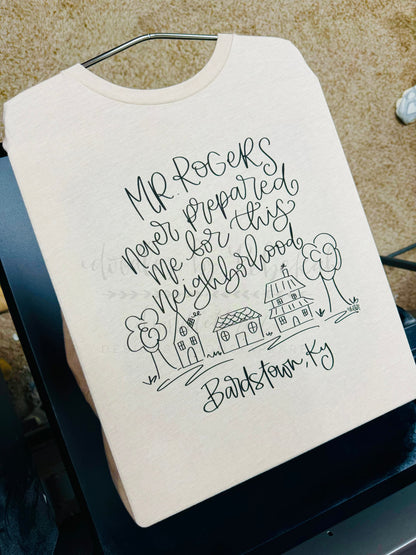 MR. ROGERS
never prepared
me for this
neighborhood
Bardstown, Ky